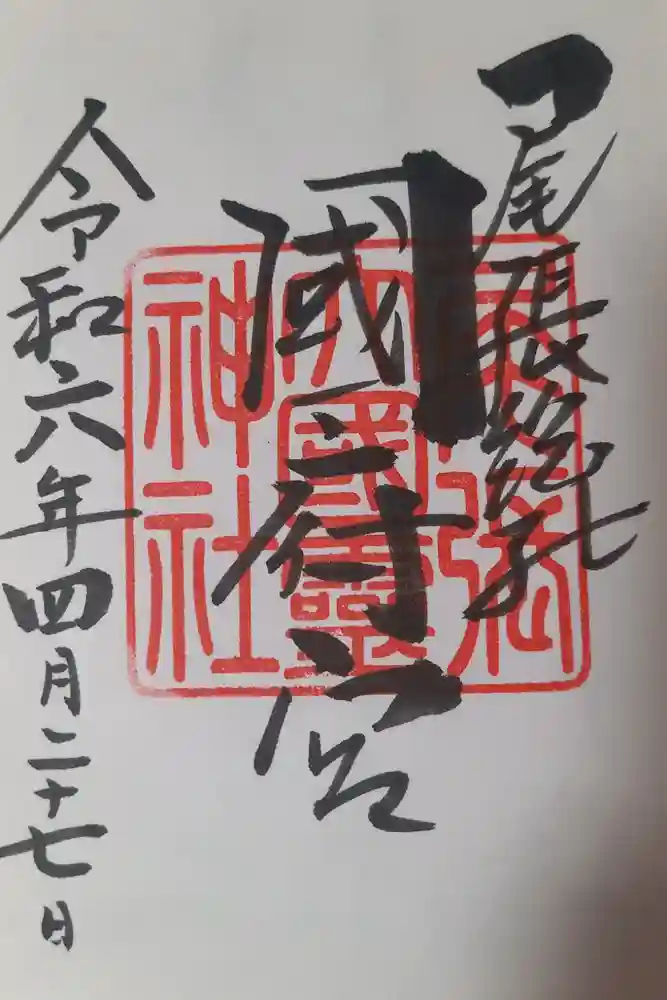 尾張総社
國府宮
令和六年四月二十七日
尾張
大國靈
神社